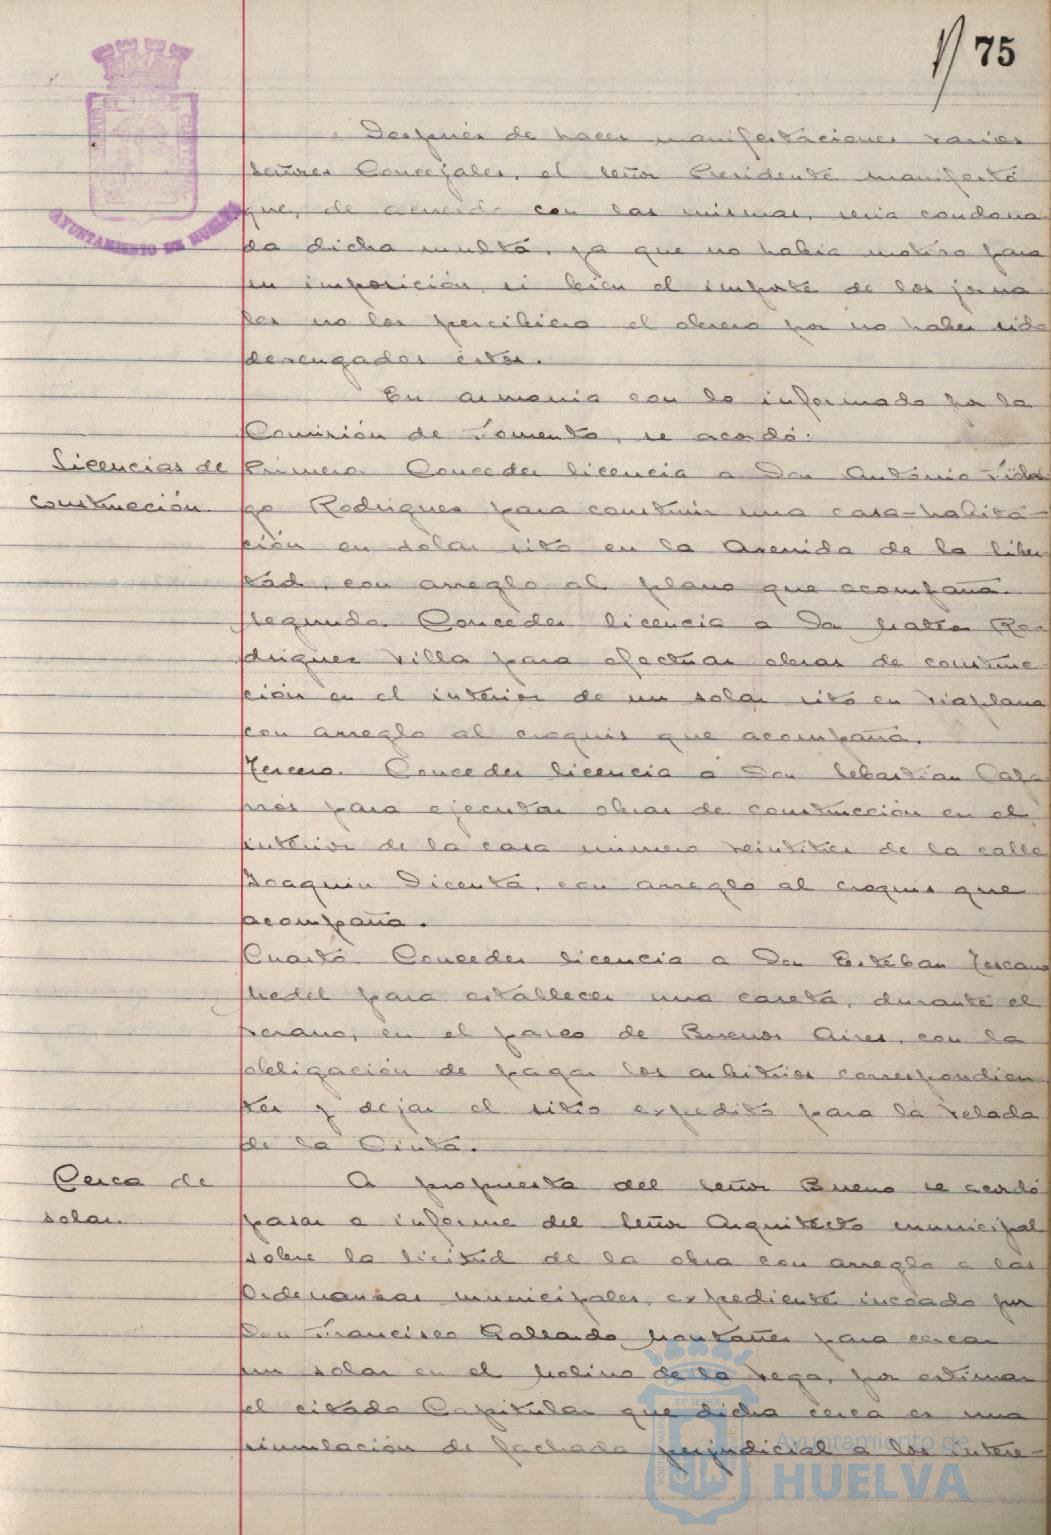 75
AYUNTAMIENTO DE HUELVA
Después de hacer manifestaciones varios
señores Concejales, el señor Presidente manifestó
que, de acuerdo con las mismas, sería condona
da dicha multa, ya que no había motivo para
su imposición, si bien el importe de los jorna
les no los percibiera el obrero por no haber sido
devengados estos.
En armonía con lo informado por la
Comisión de Fomento, se acordó:
Licencias de
construcción.
Primero. Conceder licencia a Don Antonio Fidal
go Rodriguez para construir una casa-habita-
ción en solar sito en la Avenida de la liber
tad, con arreglo al plano que acompaña.
Segundo. Conceder licencia a Don Ro-
driguez Villa para efectuar obras de construc
ción en el interior de un solar sito en Viaplana
con arreglo al croquis que acompaña.
Tercero. Conceder licencia a Don Sebastián Caza
para ejecutar obras de construcción en el
interior de la casa número veintitres de la calle
Joaquin Dicenta, con arreglo al croquis que
acompaña.
Cuarto. Conceder licencia a Don Esteban Tercano
Medel para establecer una caseta, durante el
verano, en el paseo de Buenos Aires, con la
obligación de pagar los arbitrios correspondien
tes y dejar el sitio expedito para la velada
de la Cinta.
Cerca de
solar.
A propuesta del señor Bueno se acordó
pasar a informe del Señor Arquitecto municipal
sobre la licitud de la obra con arreglo a las
Ordenanzas municipales, expediente incoado por
Don Francisco Gallardo Montañes para cercar
un solar en el Molino de la Vega, por estimar
el citado Capitular que dicha cerca es una
simulación de fachada perjudicial a los intere-
Ayuntamiento de
HUELVA